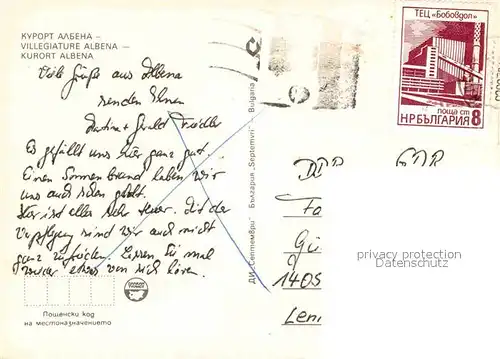 КУРОРТ АЛБЕНА –
VILLEGIATURE ALBENA –
KURORT ALBENA
Viele Grüße aus Albena
senden Ihnen
Martina + Gerald Fiedler
Es gefällt uns hier ganz gut.
Einen Sonnenbrand haben wir
uns auch schon geholt.
Hier ist alles sehr teuer. Mit der
Verpflegung sind wir auch nicht
ganz zufrieden. Lassen Sie mal
wieder etwas von sich hören.
Пощенски код
на местоназначението
ДИ „Септември" България „Septemvri" Bulgaria
ТЕЦ „Бобовдол"
поща ст
НР БЪЛГАРИЯ 8
DDR GDR
Fa
Gü
1405
Len
privacy protection
Datenschutz